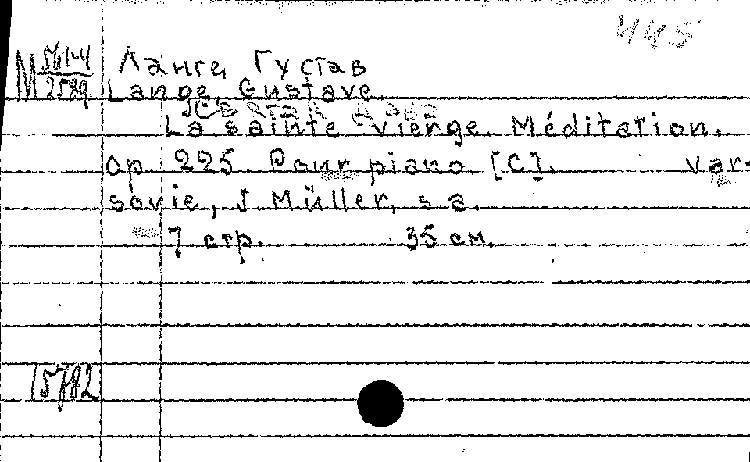 445
М 561-4
2589
Ланге, Густав
Lange, Gustave.
La sainte Vierge. Méditation.
op. 225. Pour piano. [C]. Var-
sovie, J. Müller, s. a.
7 стр. 35 см.
15782